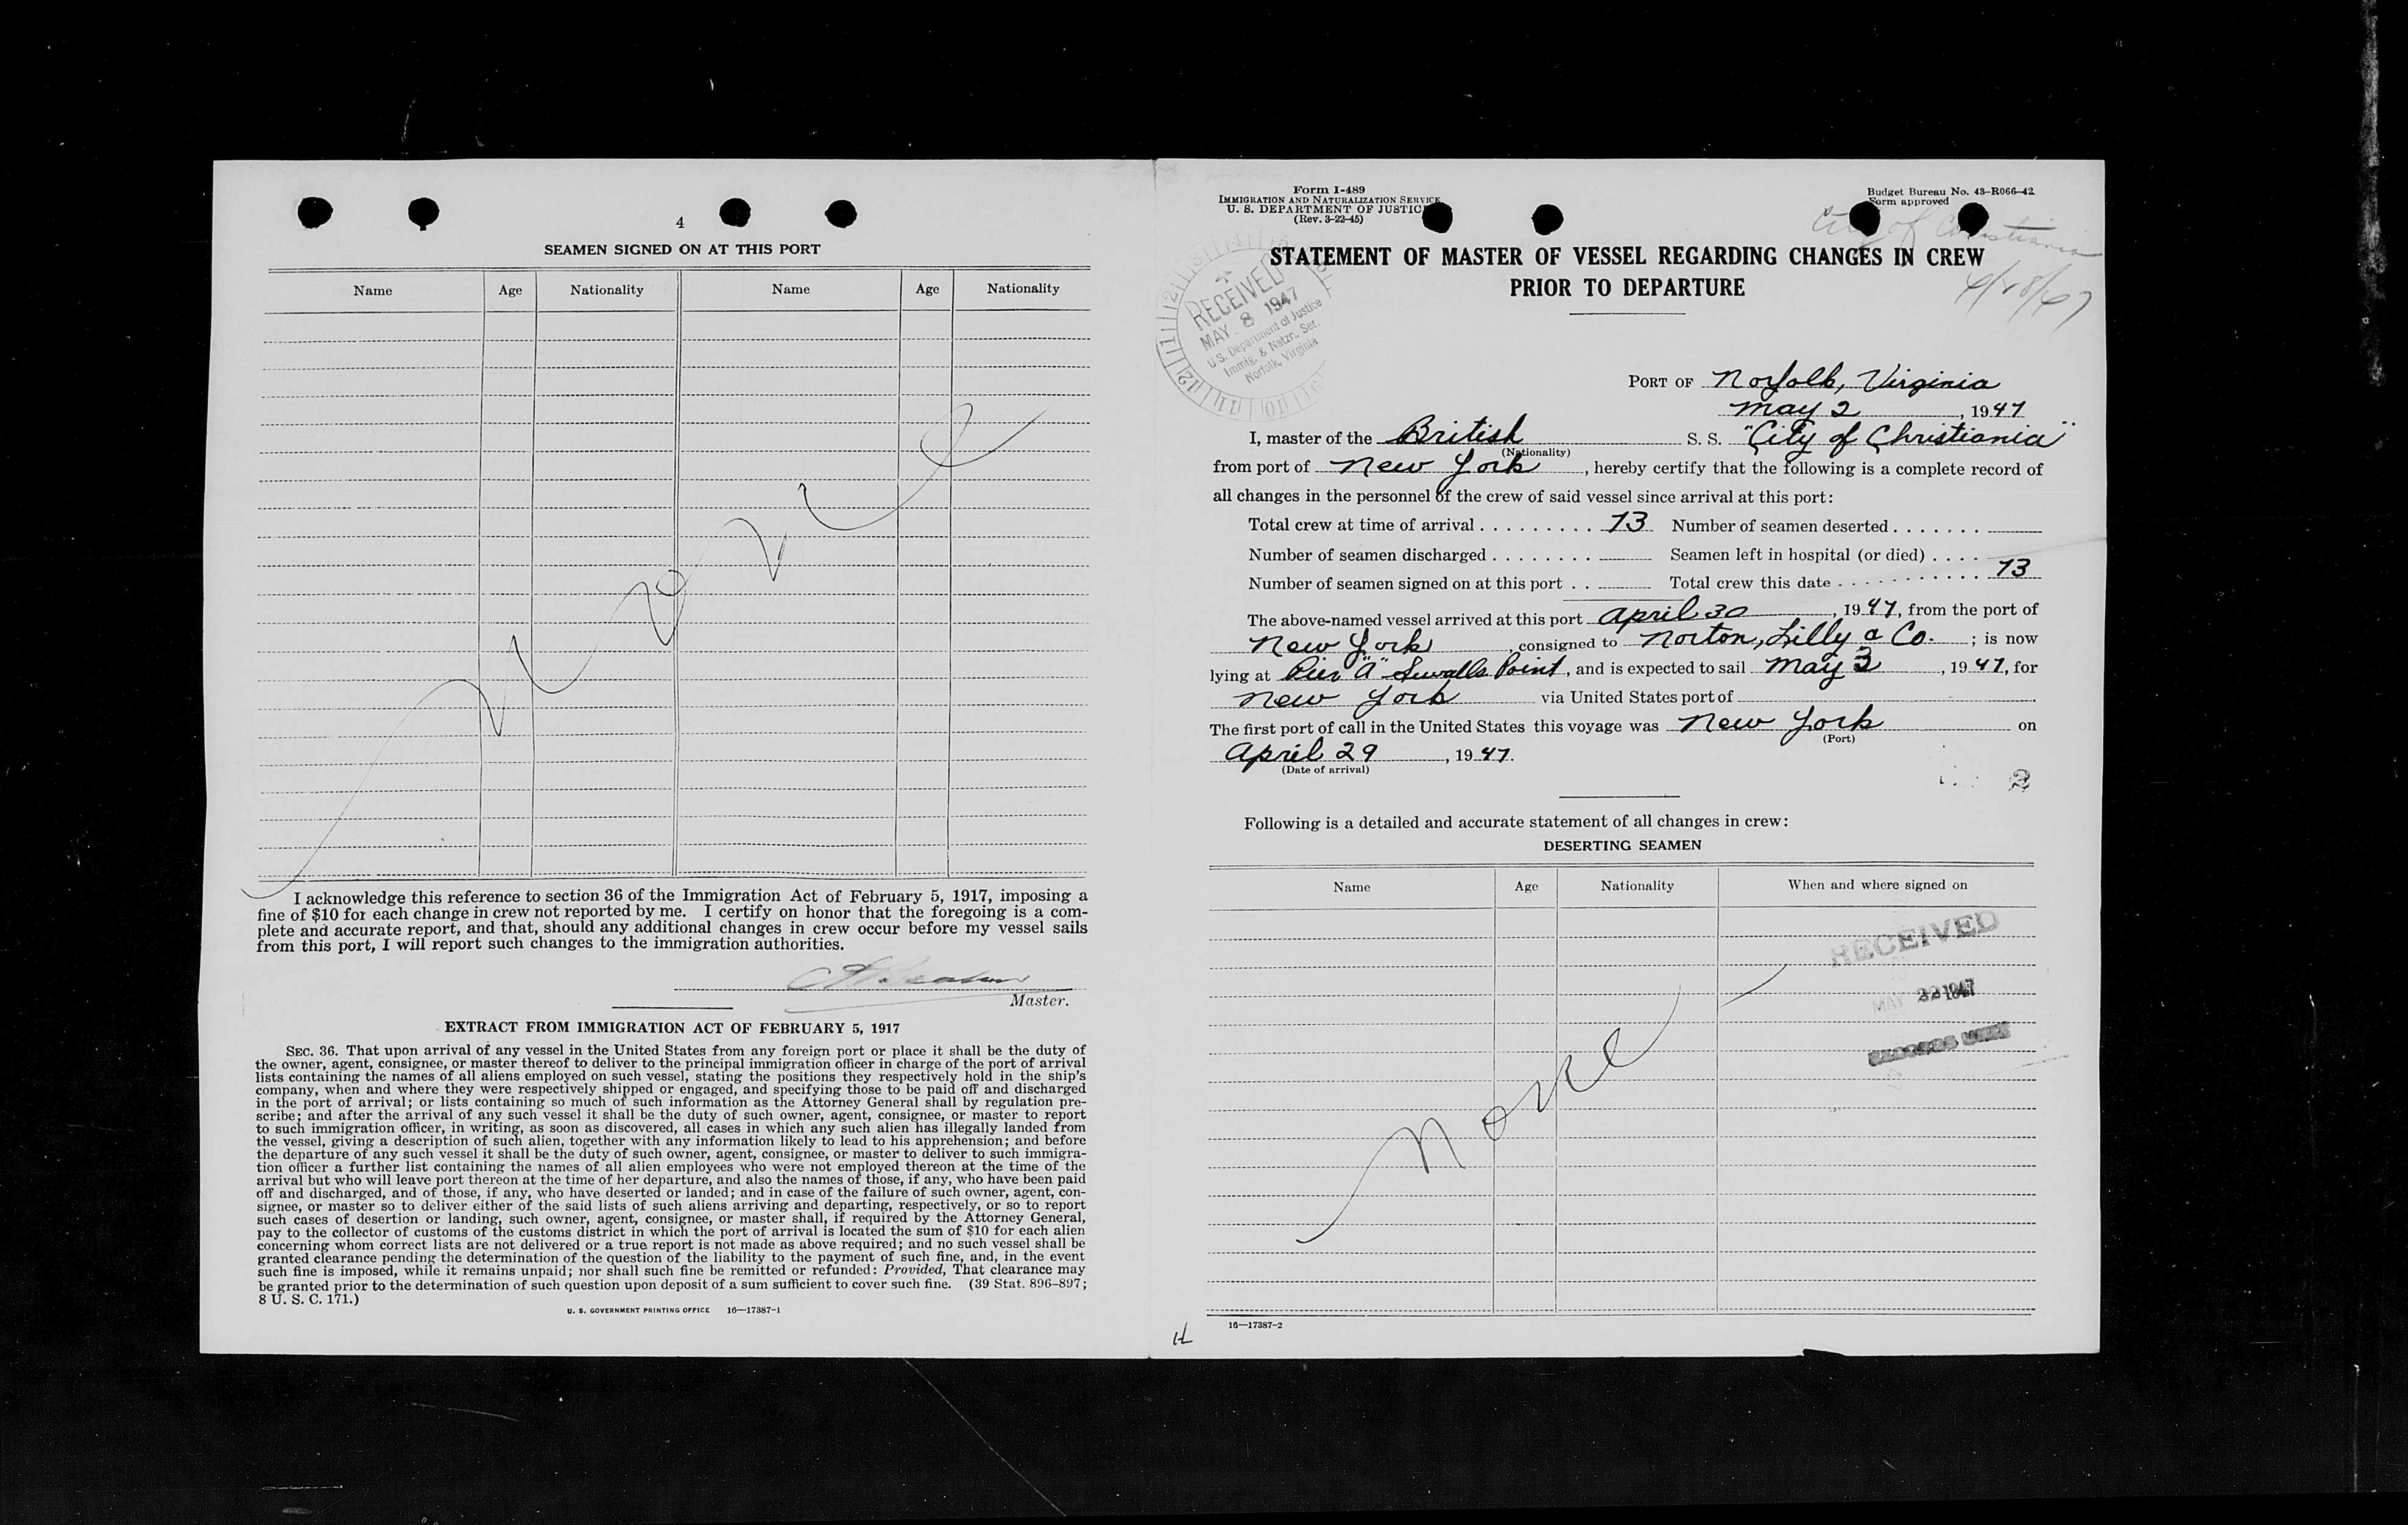 4
SEAMEN SIGNED ON AT THIS PORT
Name Age Nationality Name Age Nationality
None
I acknowledge this reference to section 36 of the Immigration Act of February 5, 1917, imposing a
fine of $10 for each change in crew not reported by me. I certify on honor that the foregoing is a com-
plete and accurate report, and that, should any additional changes in crew occur before my vessel sails
from this port, I will report such changes to the immigration authorities.
Master.
EXTRACT FROM IMMIGRATION ACT OF FEBRUARY 5, 1917
SEC. 36. That upon arrival of any vessel in the United States from any foreign port or place it shall be the duty of
the owner, agent, consignee, or master thereof to deliver to the principal immigration officer in charge of the port of arrival
lists containing the names of all aliens employed on such vessel, stating the positions they respectively hold in the ship's
company, when and where they were respectively shipped or engaged, and specifying those to be paid off and discharged
in the port of arrival; or lists containing so much of such information as the Attorney General shall by regulation pre-
scribe; and after the arrival of any such vessel it shall be the duty of such owner, agent, consignee, or master to report
to such immigration officer, in writing, as soon as discovered, all cases in which any such alien has illegally landed from
the vessel, giving a description of such alien, together with any information likely to lead to his apprehension; and before
the departure of any such vessel it shall be the duty of such owner, agent, consignee, or master to deliver to such immigra-
tion officer a further list containing the names of all alien employees who were not employed thereon at the time of the
arrival but who will leave port thereon at the time of her departure, and also the names of those, if any, who have been paid
off and discharged, and of those, if any, who have deserted or landed; and in case of the failure of such owner, agent, con-
signee, or master so to deliver either of the said lists of such aliens arriving and departing, respectively, or so to report
such cases of desertion or landing, such owner, agent, consignee, or master shall, if required by the Attorney General,
pay to the collector of customs of the customs district in which the port of arrival is located the sum of $10 for each alien
concerning whom correct lists are not delivered or a true report is not made as above required; and no such vessel shall be
granted clearance pending the determination of the question of the liability to the payment of such fine, and, in the event
such fine is imposed, while it remains unpaid; nor shall such fine be remitted or refunded: Provided, That clearance may
be granted prior to the determination of such question upon deposit of a sum sufficient to cover such fine. (39 Stat. 896–897;
8 U. S. C. 171.)
U. S. GOVERNMENT PRINTING OFFICE 16—17387-1
Form I-489
IMMIGRATION AND NATURALIZATION SERVICE
U. S. DEPARTMENT OF JUSTICE
(Rev. 3-22-45)
Budget Bureau No. 43-R066-42
Form approved
City of Christiania
4/28/47
STATEMENT OF MASTER OF VESSEL REGARDING CHANGES IN CREW
PRIOR TO DEPARTURE
RECEIVED
MAY 8 1947
U.S. Department of Justice
Immig. & Natzn. Ser.
Norfolk, Virginia
PORT OF Norfolk, Virginia
May 2, 1947
I, master of the British S. S. "City of Christiania"
(Nationality)
from port of New York, hereby certify that the following is a complete record of
all changes in the personnel of the crew of said vessel since arrival at this port:
Total crew at time of arrival . . . . . . . . . 73 Number of seamen deserted . . . . . . .
Number of seamen discharged . . . . . . . . Seamen left in hospital (or died) . . . .
Number of seamen signed on at this port . . Total crew this date . . . . . . . . . . . 73
The above-named vessel arrived at this port April 30, 1947, from the port of
New York, consigned to Norton, Lilly & Co. ; is now
lying at Pier "A" Sewalls Point, and is expected to sail May 3, 1947, for
New York via United States port of
The first port of call in the United States this voyage was New York on
(Port)
April 29, 1947.
(Date of arrival)
2
Following is a detailed and accurate statement of all changes in crew:
DESERTING SEAMEN
Name Age Nationality When and where signed on
RECEIVED
MAY 22 1947
None
16—17387-2